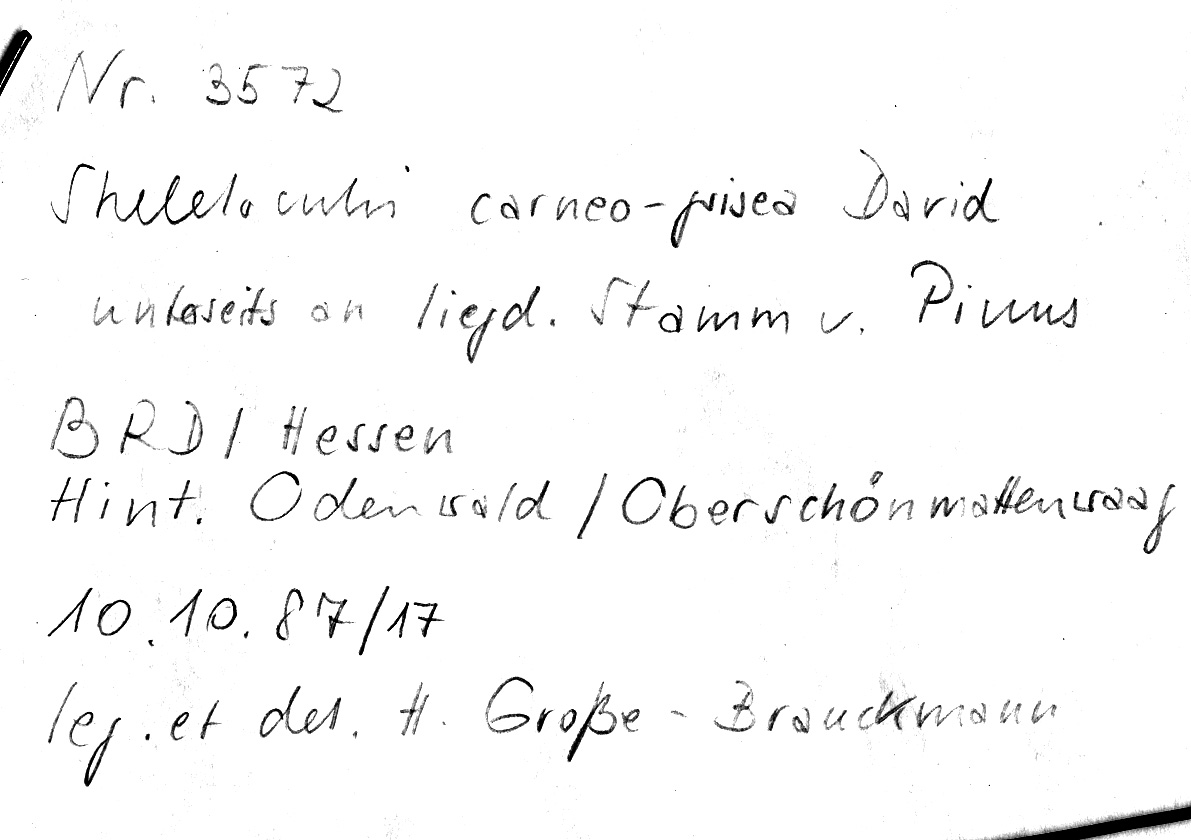 Nr. 3572
Skeletocutis carneo-grisea David
unterseits an liegd. Stamm v. Pinus
BRD/Hessen
Hint. Odenwald/Oberschönmattenwaag
10.10.87/17
leg. et det. H. Große-Brauckmann